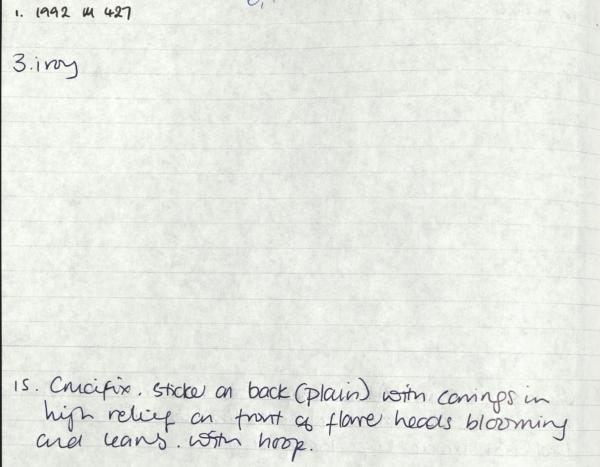 1. 1992 M 427
3. ivoy
15. Crucifix. sticke on back (plain) with carvings in
high relief on front of flowe heads blooming
and leaves. with hoop.